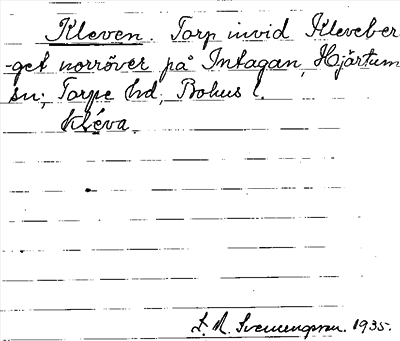 Kleven. Torp invid Kleveber-
-get norröver på Intagan, Hjärtum
sn; Torpe hd, Bohus l.
Kléva.
S. M. Svenungsson. 1935.